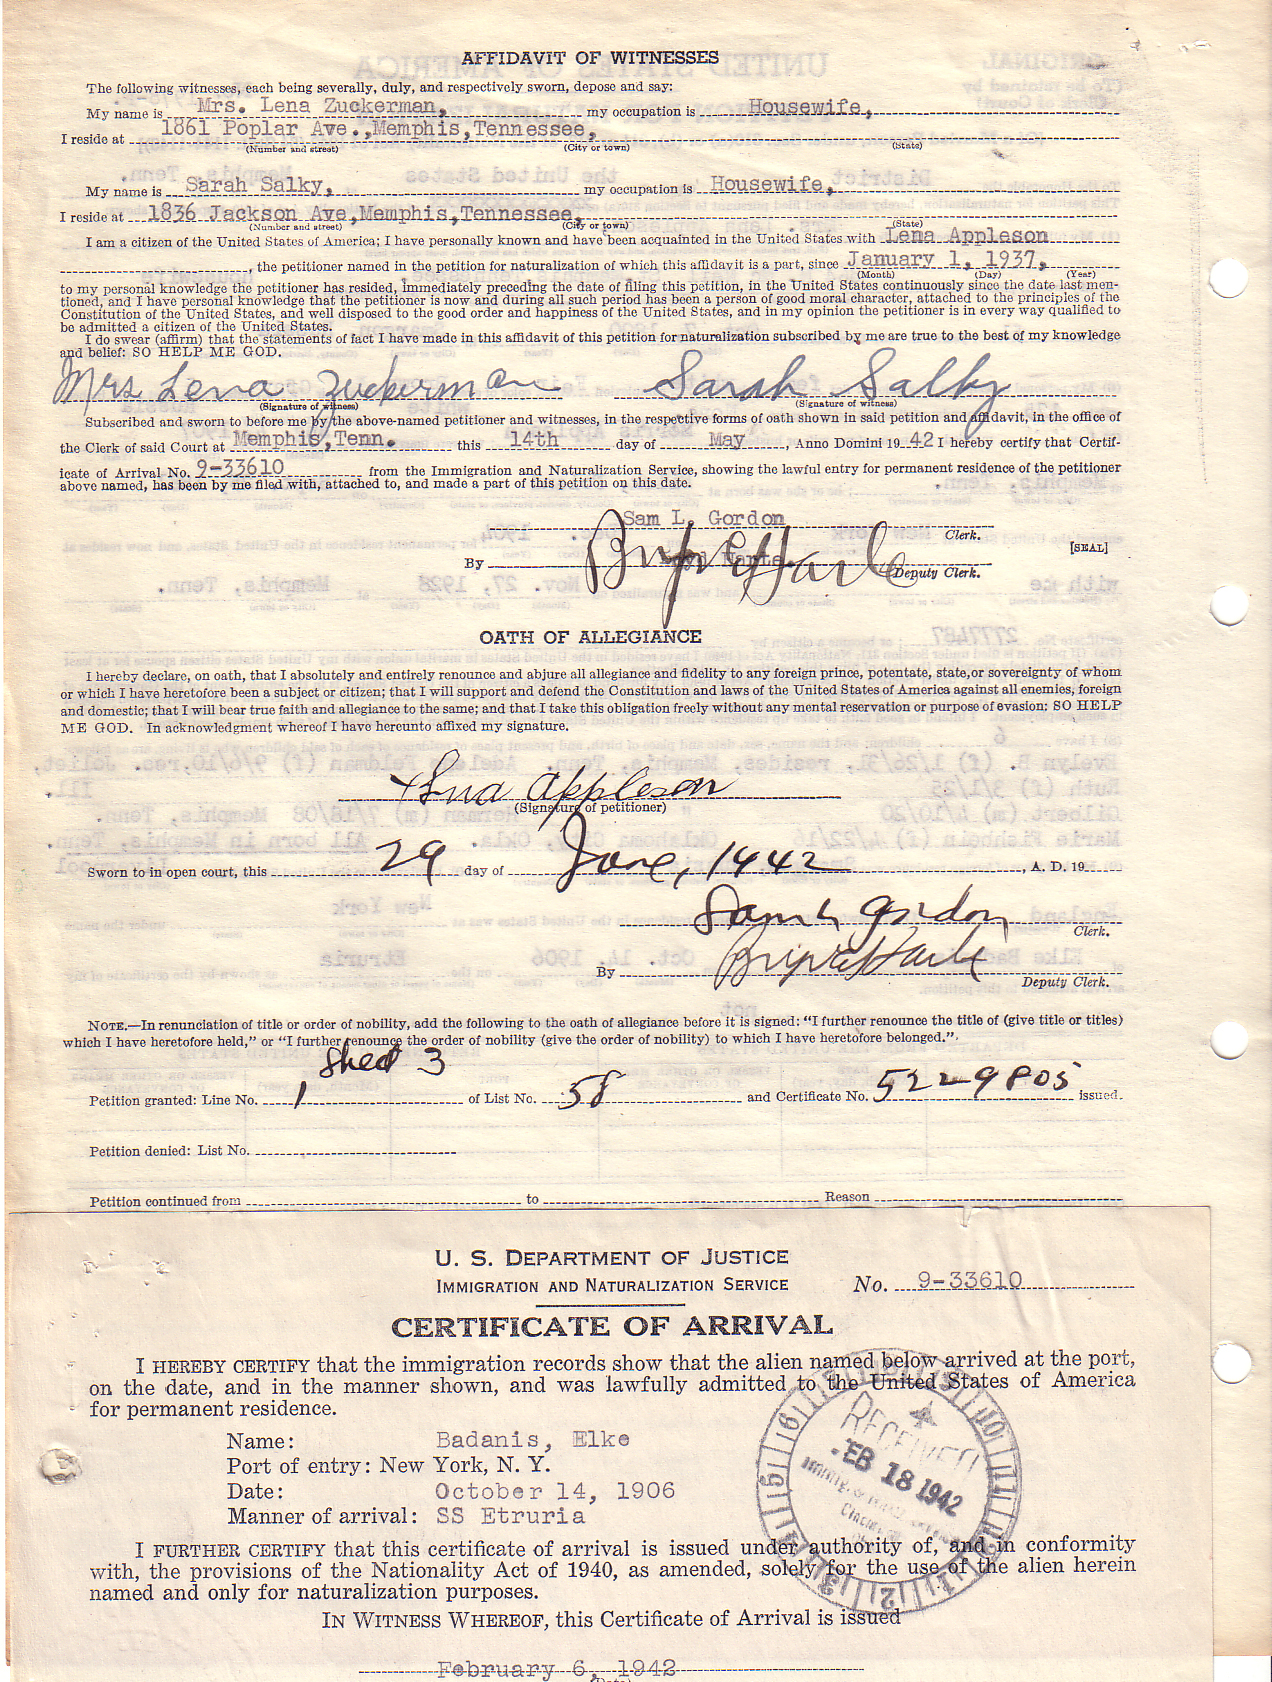 AFFIDAVIT OF WITNESSES
The following witnesses, each being severally, duly, and respectively sworn, depose and say:
My name is Mrs. Lena Zuckerman, my occupation is Housewife,
I reside at 1861 Poplar Ave.,Memphis,Tennessee,
(Number and street) (City or town) (State)
My name is Sarah Salky, my occupation is Housewife,
I reside at 1836 Jackson Ave,Memphis,Tennessee,
(Number and street) (City or town) (State)
I am a citizen of the United States of America; I have personally known and have been acquainted in the United States with Lena Appleson
, the petitioner named in the petition for naturalization of which this affidavit is a part, since January 1, 1937,
(Month) (Day) (Year)
to my personal knowledge the petitioner has resided, immediately preceding the date of filing this petition, in the United States continuously since the date last men-
tioned, and I have personal knowledge that the petitioner is now and during all such period has been a person of good moral character, attached to the principles of the
Constitution of the United States, and well disposed to the good order and happiness of the United States, and in my opinion the petitioner is in every way qualified to
be admitted a citizen of the United States.
I do swear (affirm) that the statements of fact I have made in this affidavit of this petition for naturalization subscribed by me are true to the best of my knowledge
and belief: SO HELP ME GOD.
Mrs Lena Zuckerman Sarah Salky
(Signature of witness) (Signature of witness)
Subscribed and sworn to before me by the above-named petitioner and witnesses, in the respective forms of oath shown in said petition and affidavit, in the office of
the Clerk of said Court at Memphis,Tenn. this 14th day of May, Anno Domini 19 42 I hereby certify that Certif-
icate of Arrival No. 9-33610 from the Immigration and Naturalization Service, showing the lawful entry for permanent residence of the petitioner
above named, has been by me filed with, attached to, and made a part of this petition on this date.
Sam L. Gordon
Clerk.
[SEAL]
By Deputy Clerk.
OATH OF ALLEGIANCE
I hereby declare, on oath, that I absolutely and entirely renounce and abjure all allegiance and fidelity to any foreign prince, potentate, state, or sovereignty of whom
or which I have heretofore been a subject or citizen; that I will support and defend the Constitution and laws of the United States of America against all enemies, foreign
and domestic; that I will bear true faith and allegiance to the same; and that I take this obligation freely without any mental reservation or purpose of evasion: SO HELP
ME GOD. In acknowledgment whereof I have hereunto affixed my signature.
x Lena Appleson
(Signature of petitioner)
Sworn to in open court, this 29 day of June, 1942, A. D. 19
Sam L Gordon
Clerk.
By
Deputy Clerk.
NOTE.—In renunciation of title or order of nobility, add the following to the oath of allegiance before it is signed: "I further renounce the title of (give title or titles)
which I have heretofore held," or "I further renounce the order of nobility (give the order of nobility) to which I have heretofore belonged."
Sheet 3
Petition granted: Line No. 1 of List No. 58 and Certificate No. 5229805 issued.
Petition denied: List No.
Petition continued from to Reason
U. S. DEPARTMENT OF JUSTICE
IMMIGRATION AND NATURALIZATION SERVICE No. 9-33610
CERTIFICATE OF ARRIVAL
I HEREBY CERTIFY that the immigration records show that the alien named below arrived at the port,
on the date, and in the manner shown, and was lawfully admitted to the United States of America
for permanent residence.
Name: Badanis, Elke
Port of entry: New York, N. Y.
Date: October 14, 1906
Manner of arrival: SS Etruria
RECEIVED
FEB 18 1942
I FURTHER CERTIFY that this certificate of arrival is issued under authority of, and in conformity
with, the provisions of the Nationality Act of 1940, as amended, solely for the use of the alien herein
named and only for naturalization purposes.
IN WITNESS WHEREOF, this Certificate of Arrival is issued
February 6, 1942